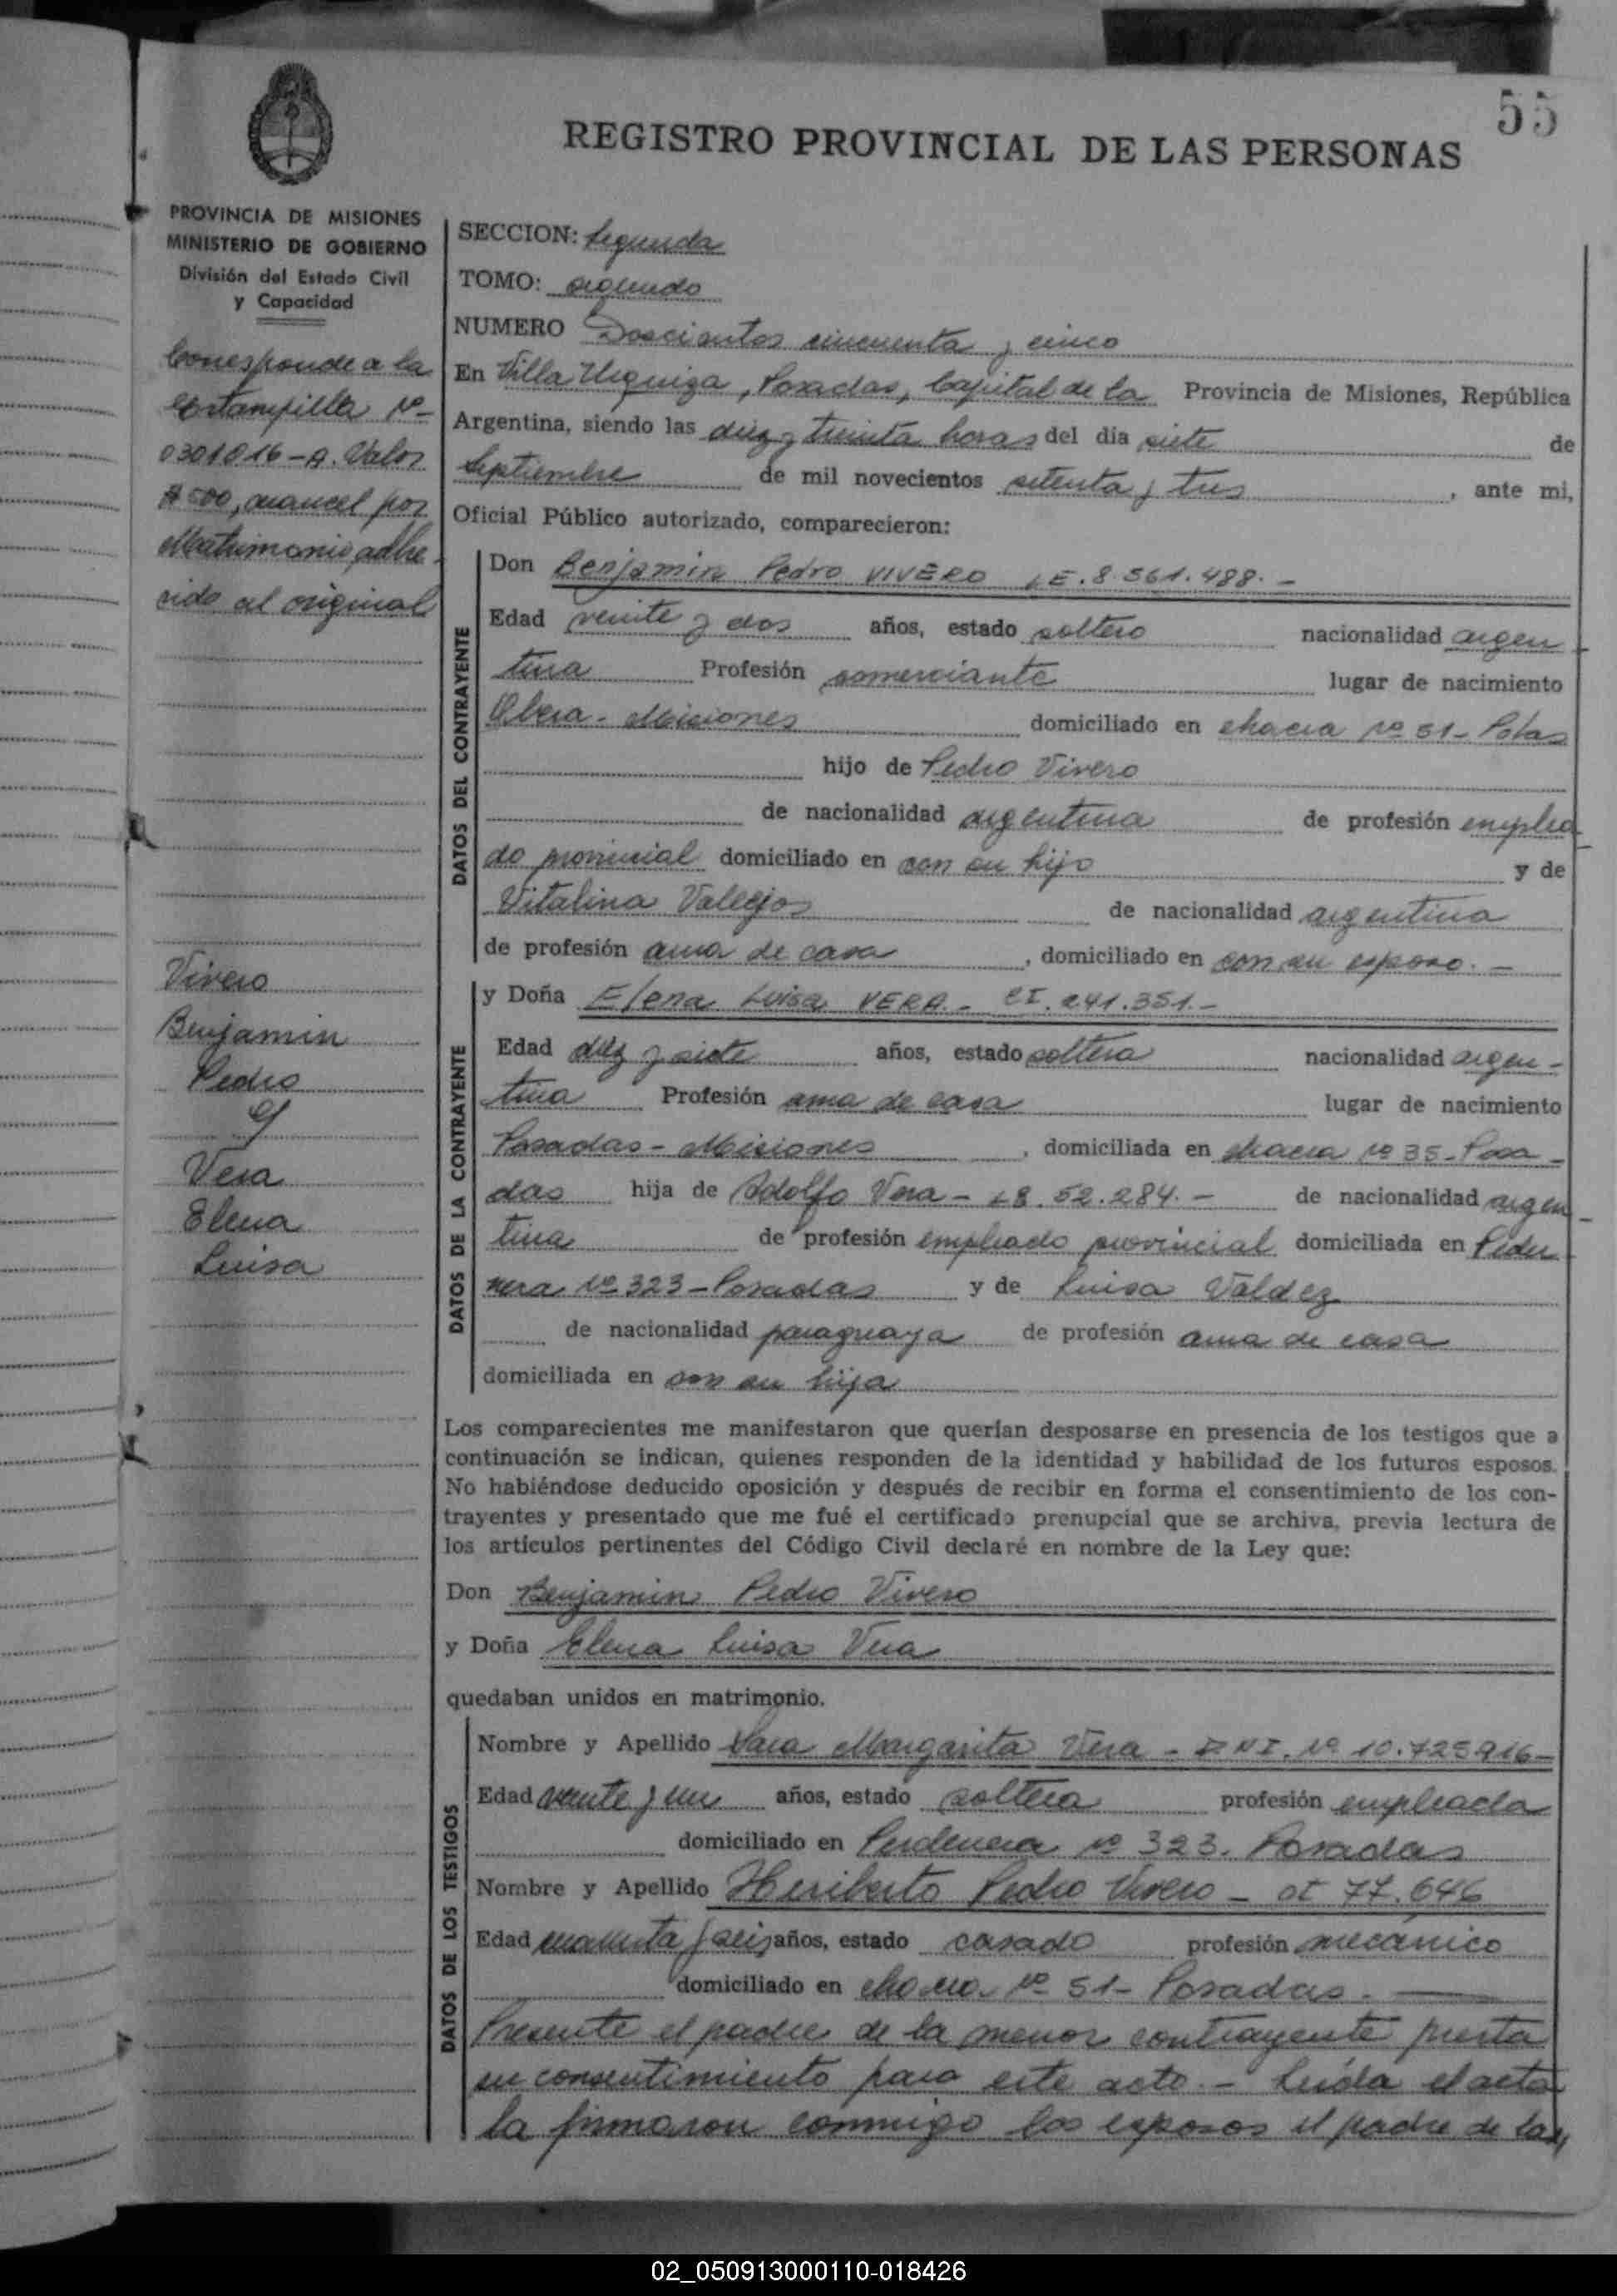 55
REGISTRO PROVINCIAL DE LAS PERSONAS
PROVINCIA DE MISIONES
MINISTERIO DE GOBIERNO
División del Estado Civil
y Capacidad
Corresponde a la
Estampilla Nº
0301016-A. Valor
$ 500, arancel por
Matrimonio adhe
rido al original
Vivero
Benjamin
Pedro
y
Vera
Elena
Luisa
SECCION: Segunda
TOMO: segundo
NUMERO Doscientos cincuenta y cinco
En Villa Urquiza, Posadas, Capital de la Provincia de Misiones, República
Argentina, siendo las diez y treinta horas del día siete de
Septiembre de mil novecientos setenta y tres, ante mi,
Oficial Público autorizado, comparecieron:
DATOS DEL CONTRAYENTE
Don Benjamin Pedro VIVERO LE. 8.561.488.-
Edad veinte y dos años, estado soltero nacionalidad argen
tina Profesión comerciante lugar de nacimiento
Obera - Misiones domiciliado en chacra Nº 51 - Pdas
hijo de Pedro Vivero
de nacionalidad argentina de profesión emplea
do provincial domiciliado en con su hijo y de
Vitalina Vallejos de nacionalidad argentina
de profesión ama de casa, domiciliado en con su esposo. -
DATOS DE LA CONTRAYENTE
y Doña Elena Luisa VERA - CI. 241.351.-
Edad diez y siete años, estado soltera nacionalidad argen -
tina Profesión ama de casa lugar de nacimiento
Posadas - Misiones, domiciliada en chacra Nº 35 - Posa -
das hija de Adolfo Vera - 52.284. - de nacionalidad argen -
tina de profesión empleado provincial domiciliada en Peder
nera Nº 323 - Posadas y de Luisa Valdez
de nacionalidad paraguaya de profesión ama de casa
domiciliada en con su hija
Los comparecientes me manifestaron que querían desposarse en presencia de los testigos que a
continuación se indican, quienes responden de la identidad y habilidad de los futuros esposos.
No habiéndose deducido oposición y después de recibir en forma el consentimiento de los con-
trayentes y presentado que me fué el certificado prenupcial que se archiva, previa lectura de
los artículos pertinentes del Código Civil declaré en nombre de la Ley que:
Don Benjamin Pedro Vivero
y Doña Elena Luisa Vera
quedaban unidos en matrimonio.
DATOS DE LOS TESTIGOS
Nombre y Apellido Sara Margarita Vera - DNI. Nº 10.725916-
Edad veinte y un años, estado soltera profesión empleada
domiciliado en Perdenera Nº 323. Posadas
Nombre y Apellido Heriberto Pedro Vivero - 77.646
Edad cuarenta y seis años, estado casado profesión mecánico
domiciliado en chacra Nº 51 - Posadas. -
Presente el padre de la menor contrayente presta
su consentimiento para este acto. - Leída el acta
la firmaron conmigo los esposos el padre de la
02_050913000110-018426